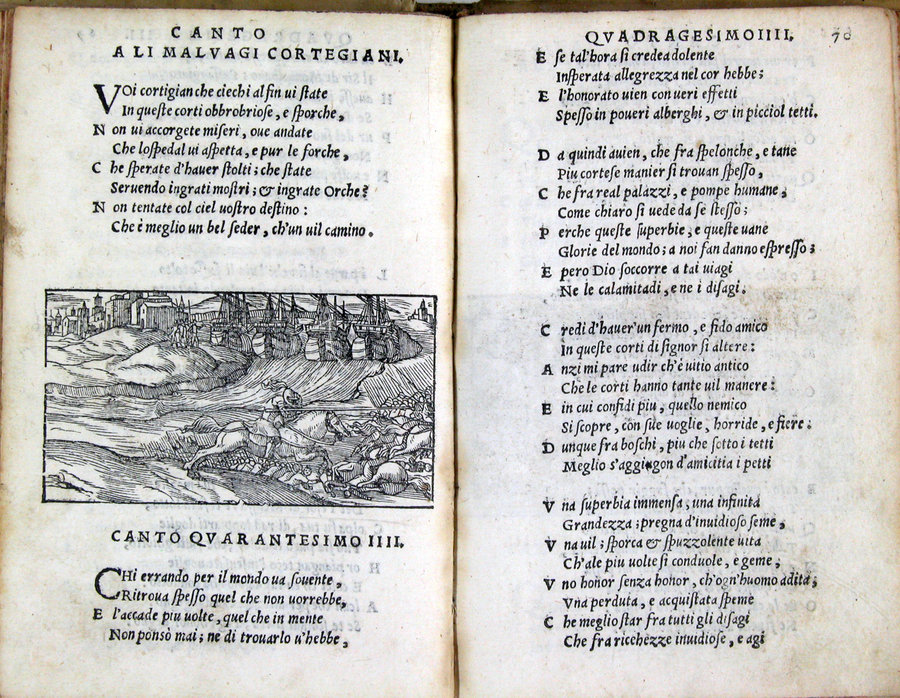 CANTO
A LI MALVAGI CORTEGIANI.
VOi cortigian che ciechi al fin ui state
In queste corti obbrobriose, e sporche,
Non ui accorgete miseri, oue andate
Che lospedal ui aspetta, e pur le forche,
Che sperate d'hauer stolti; che state
Seruendo ingrati mostri; & ingrate Orche?
Non tentate col ciel uostro destino:
Che è meglio un bel seder, ch'un uil camino.
CANTO QVARANTESIMO IIII.
CHi errando per il mondo ua souente,
Ritroua spesso quel che non uorrebbe,
E l'accade piu uolte, quel che in mente
Non pensò mai; ne di trouarlo u'hebbe,
QVADRAGESIMO IIII.
70
E se tal'hora si credea dolente
Insperata allegrezza nel cor hebbe;
E l'honorato uien con ueri effetti
Spesso in poueri alberghi, & in picciol tetti.
Da quindi auien, che fra spelonche, e tane
Piu cortese manier si trouan spesso,
Che fra real palazzi, e pompe humane,
Come chiaro si uede da se stesso;
Perche queste superbie, e queste uane
Glorie del mondo; a noi fan danno espresso;
E pero Dio soccorre a tai uiagi
Ne le calamitadi, e ne i disagi.
Credi d'hauer'un fermo, e fido amico
In queste corti di signor si altere:
Anzi mi pare udir ch'è uitio antico
Che le corti hanno tante uil manere:
E in cui confidi piu, quello nemico
Si scopre, con sue uoglie, horride, e fiere:
Dunque fra boschi, piu che sotto i tetti
Meglio s'aggiogon d'amicitia i petti
Vna superbia immensa, una infinita
Grandezza; pregna d'inuidioso seme,
Vna uil; sporca & spuzzolente uita
Ch'ale piu uolte si conduole, e geme;
Vno honor senza honor, ch'ogn'huomo adita;
Vna perduta, e acquistata speme
Che meglio star fra tutti gli disagi
Che fra ricehezze inuidiose, e agi